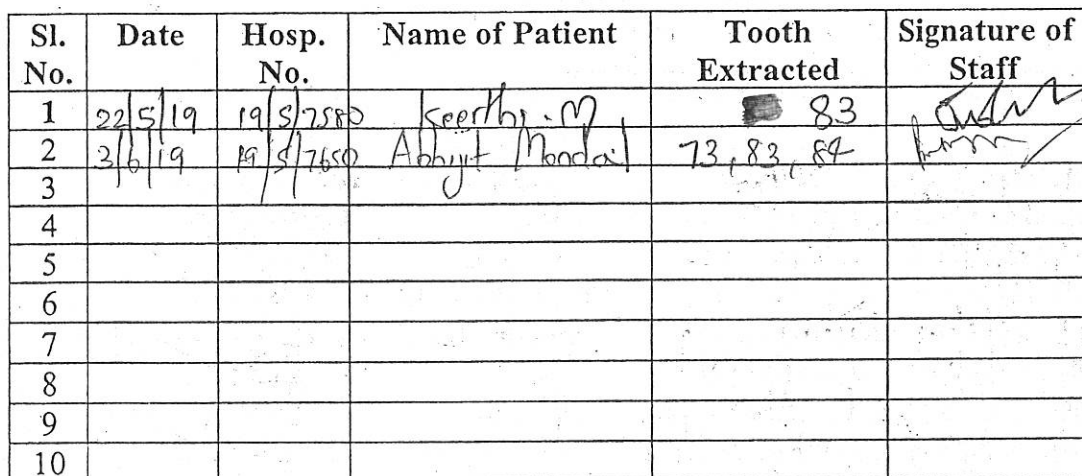 Sl. No. Date Hosp. No. Name of Patient Tooth Extracted Signature of Staff
1 22/5/19 19/S/7580 Keerthi . M 83
2 3/6/19 19/S/7650 Abhijit Mondal 73, 83, 84
3
4
5
6
7
8
9
10